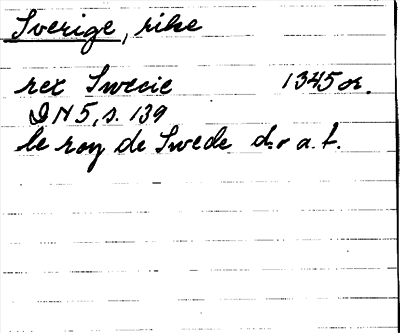 Sverige, rike
rex Swecie 1345 or.
DN 5, s. 139
le roy de Swede d:o a. t.